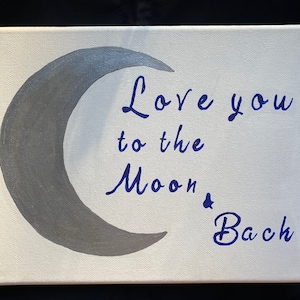 Love you
to the
Moon
&
Back